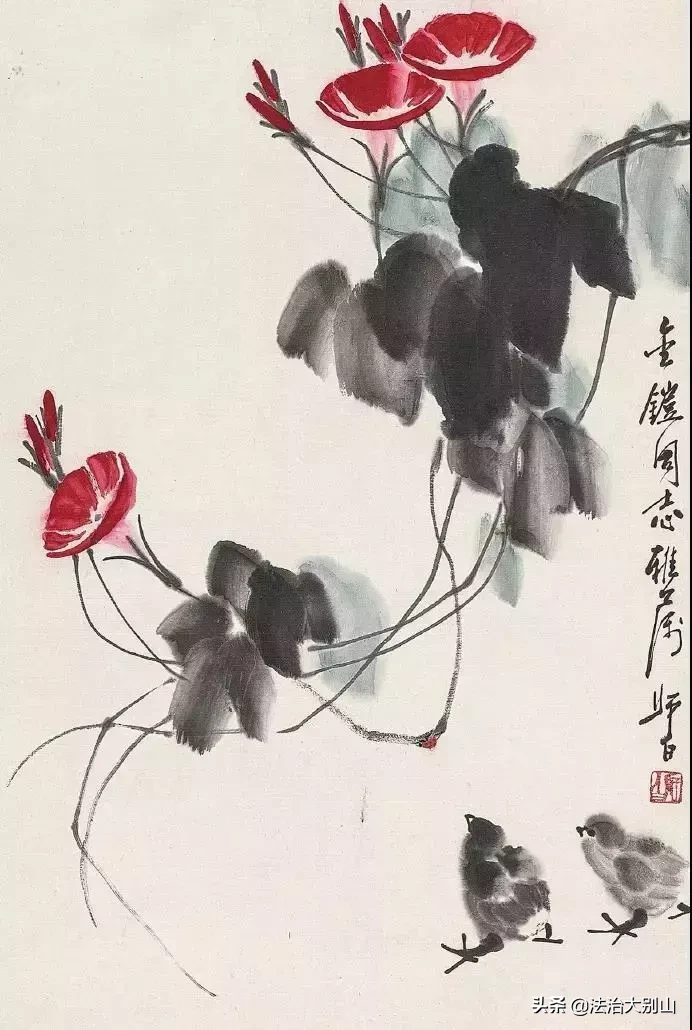 金鎧同志雅属 师白
头条 @法治大别山